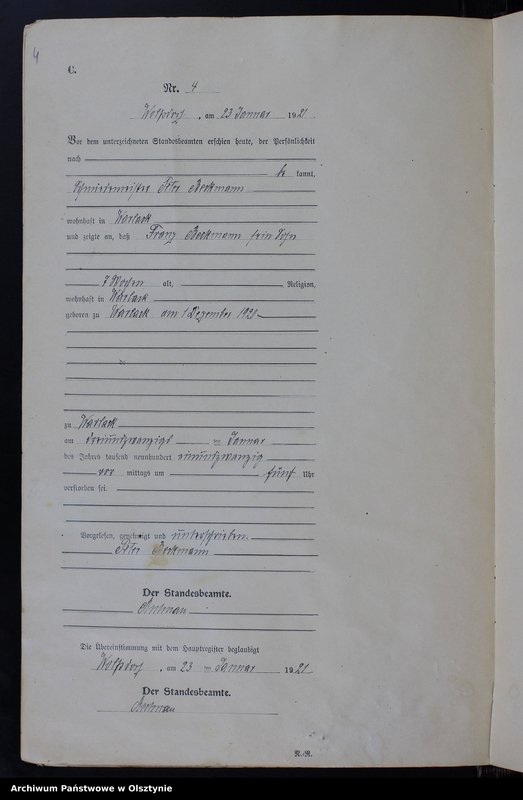 4
C.
Nr. 4
Wolfsdorf, am 23 Januar 1921.
Vor dem unterzeichneten Standesbeamten erschien heute, der Persönlichkeit
nach
be kannt,
Schmiedemeister Peter Beckmann
wohnhaft in Warlack
und zeigte an, daß Franz Beckmann sein Sohn
7 Wochen alt, Religion,
wohnhaft in Warlack
geboren zu Warlack am 1 Dezember 1920
de
zu Warlack
am dreiundzwanzigs ten Januar
des Jahres tausend neunhundert einundzwanzig
vor mittags um fünf Uhr
verstorben sei.
Vorgelesen, genehmigt und unterschrieben.
Peter Beckmann
Der Standesbeamte.
Die Übereinstimmung mit dem Hauptregister beglaubigt
Wolfsdorf, am 23 ten Januar 1921
Der Standesbeamte.
N.-R.
Archiwum Państwowe w Olsztynie